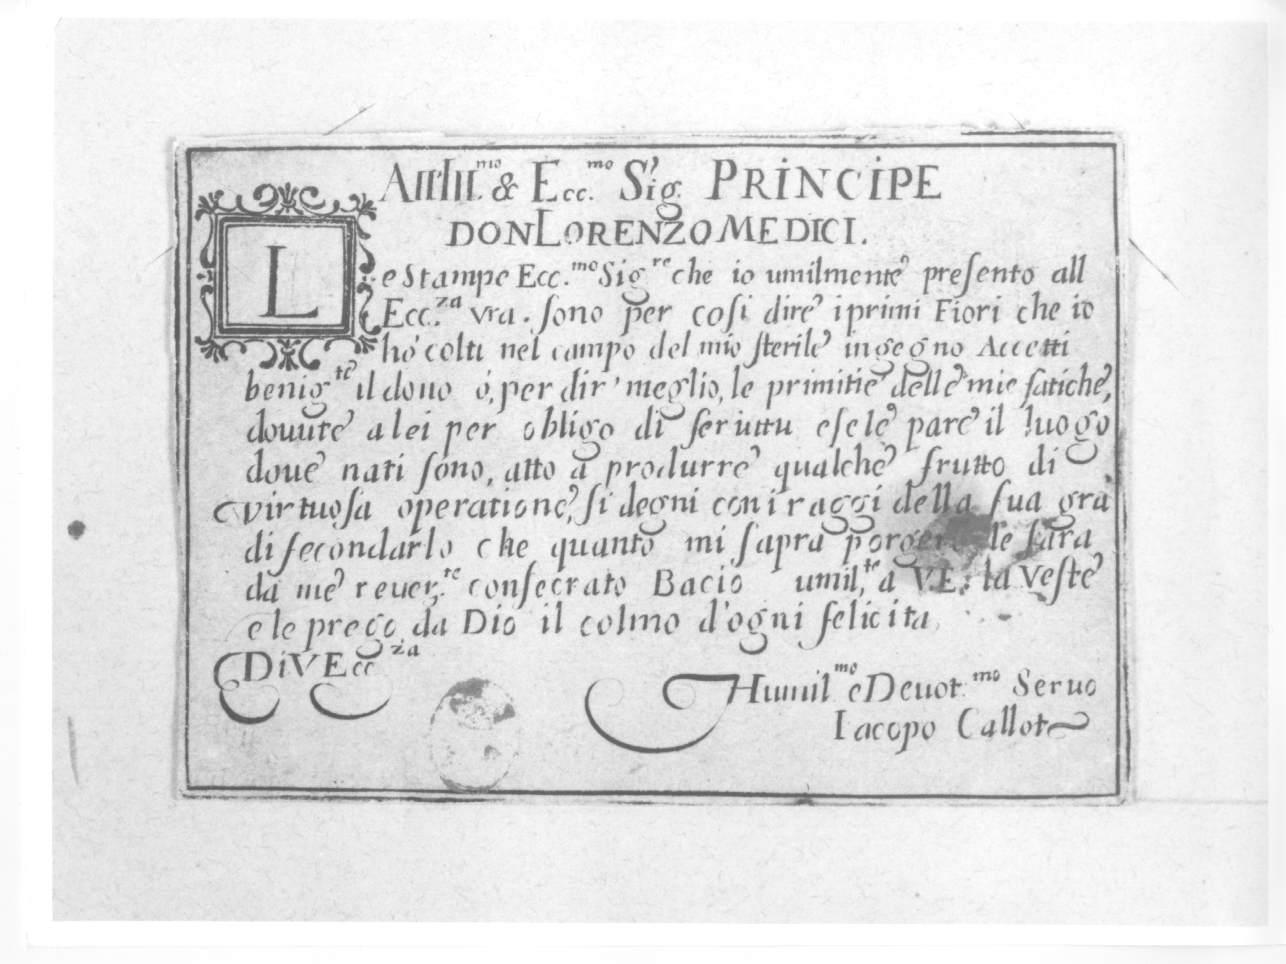 All'Ill.mo & Ecc.mo Sig. PRINCIPE
DON LORENZO MEDICI.
Le Stampe Ecc.mo Sig.re che io umilmente presento all
Ecc.za vra. sono per cosi dire i primi Fiori che io
hò colti nel campo del mio sterile ingegno Accetti
benig.te il dono ó, per dir' meglio, le primitie delle mie fatiche,
dovute a lei per obligo di servitu e se le pare il luogo
dove nati sono, atto a produrre qualche frutto di
virtuosa operatione, si degni con i raggi della sua gra
di fecondarlo che quanto mi sapra porgere le sara
da me rever.te consecrato Bacio umil.te a VE: la Veste
e le prego da Dio il colmo d'ogni felicita
Di V Ecc.za
Humil.mo e Devot.mo Servo
Iacopo Callot